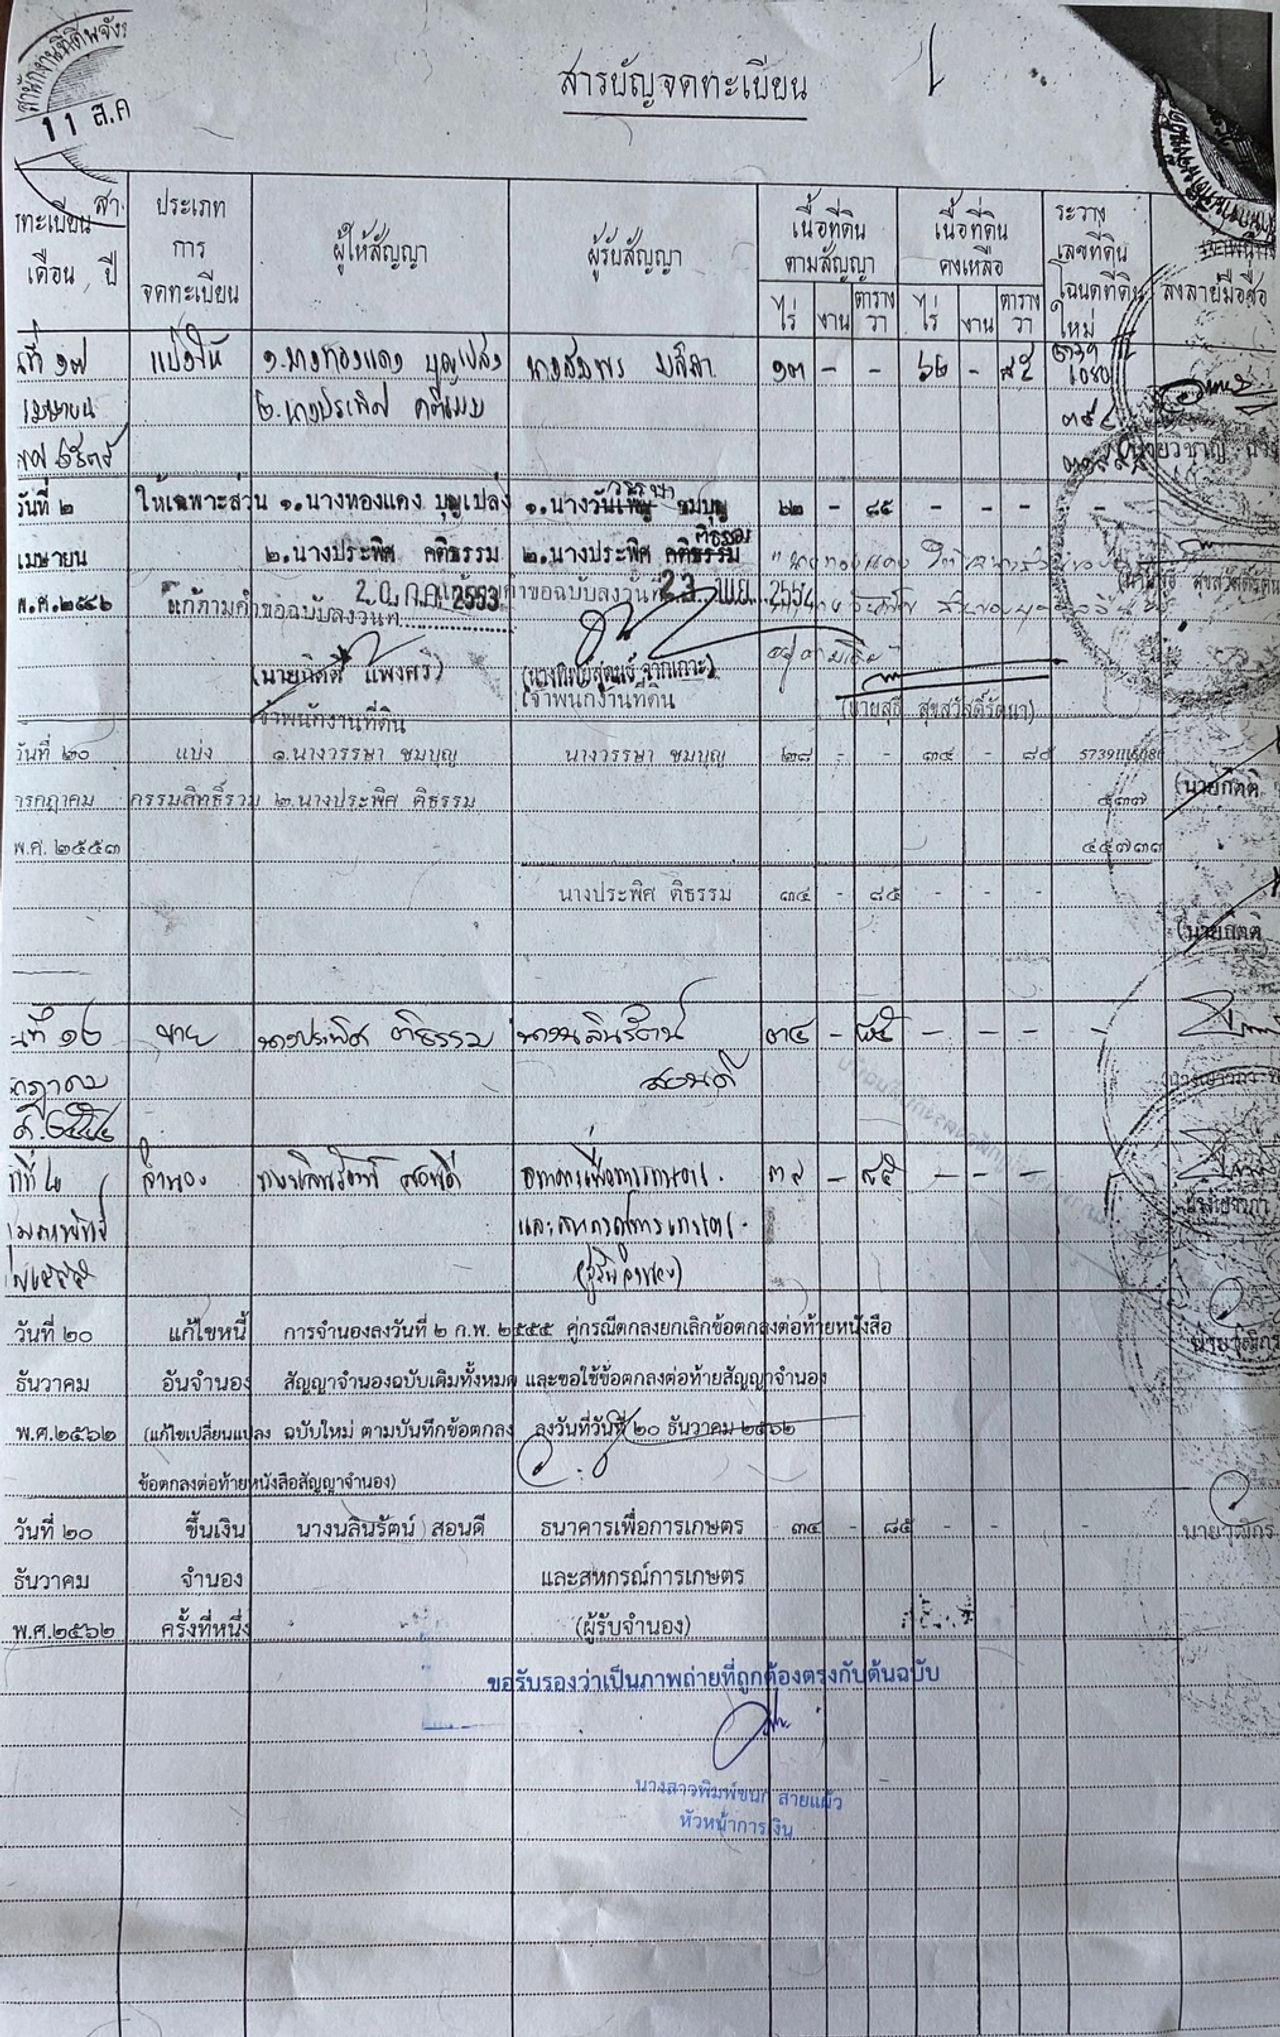 สำนักงานที่ดินจัง
11 ส.ค
สารบัญจดทะเบียน
สา.
ทะเบียน
เดือน ปี
ประเภท
การ
จดทะเบียน
ผู้ให้สัญญา
ผู้รับสัญญา
เนื้อที่ดิน
ตามสัญญา
ไร่ งาน ตาราง
วา
เนื้อที่ดิน
คงเหลือ
ไร่ งาน ตาราง
วา
ระวาง
เลขที่ดิน
โฉนดที่ดิน
ใหม่
ลงลายมือชื่อ
ที่ ๑๗ แบ่งให้ ๑.นางทองแดง บุญเปล่ง นางสมพร ๑๓ - - ๖๒ - ๘๕
เมษายน ๒.นางประพิศ
วันที่ ๒ ให้เฉพาะส่วน ๑.นางทองแดง บุญเปล่ง ๑.นางวันเพ็ญ วรรษา ชมบุญ ๖๒ - ๘๕ - - - -
เมษายน ๒.นางประพิศ คติธรรม ๒.นางประพิศ คติธรรม ติธรรม
พ.ศ.๒๕๔๖ แก้ตามคำขอฉบับลงวันที่ 20 ก.ค. 2553 คำขอฉบับลงวันที่ 23 พ.ย. 2554
(นายกิตติ แพงศรี)
เจ้าพนักงานที่ดิน
เจ้าพนักงานที่ดิน
(นายสุธี สุขสวัสดิ์รัตนา)
วันที่ ๒๐ แบ่ง ๑.นางวรรษา ชมบุญ นางวรรษา ชมบุญ ๒๘ - - ๓๔ - ๘๕
กรกฎาคม กรรมสิทธิ์รวม ๒.นางประพิศ ติธรรม ๔๓๗
พ.ศ. ๒๕๕๓ ๔๕๗๓๓
(นายกิตติ
นางประพิศ ติธรรม ๓๔ - ๘๕ - - -
(นายกิตติ
นที่ ๑๒ ขาย นางประพิศ ติธรรม นางนลินรัตน์ ๓๔ - ๘๕ - - - -
กฎาคม สอนดี
จำนอง นางนลินรัตน์ สอนดี ธนาคารเพื่อการเกษตร ๓๔ - ๘๕ - - -
และสหกรณ์การเกษตร
(ผู้รับจำนอง)
วันที่ ๒๐ แก้ไขหนี้ การจำนองลงวันที่ ๒ ก.พ. ๒๕๕๕ คู่กรณีตกลงยกเลิกข้อตกลงต่อท้ายหนังสือ
ธันวาคม อันจำนอง สัญญาจำนองฉบับเดิมทั้งหมด และขอใช้ข้อตกลงต่อท้ายสัญญาจำนอง
พ.ศ.๒๕๖๒ (แก้ไขเปลี่ยนแปลง ฉบับใหม่ ตามบันทึกข้อตกลง ลงวันที่วันที่ ๒๐ ธันวาคม ๒๕๖๒
ข้อตกลงต่อท้ายหนังสือสัญญาจำนอง)
วันที่ ๒๐ ขึ้นเงิน นางนลินรัตน์ สอนดี ธนาคารเพื่อการเกษตร ๓๔ - ๘๕ - - -
ธันวาคม จำนอง และสหกรณ์การเกษตร
พ.ศ.๒๕๖๒ ครั้งที่หนึ่ง (ผู้รับจำนอง)
ขอรับรองว่าเป็นภาพถ่ายที่ถูกต้องตรงกับต้นฉบับ
นางสาวพิมพ์ชนก สายแผ้ว
หัวหน้าการเงิน